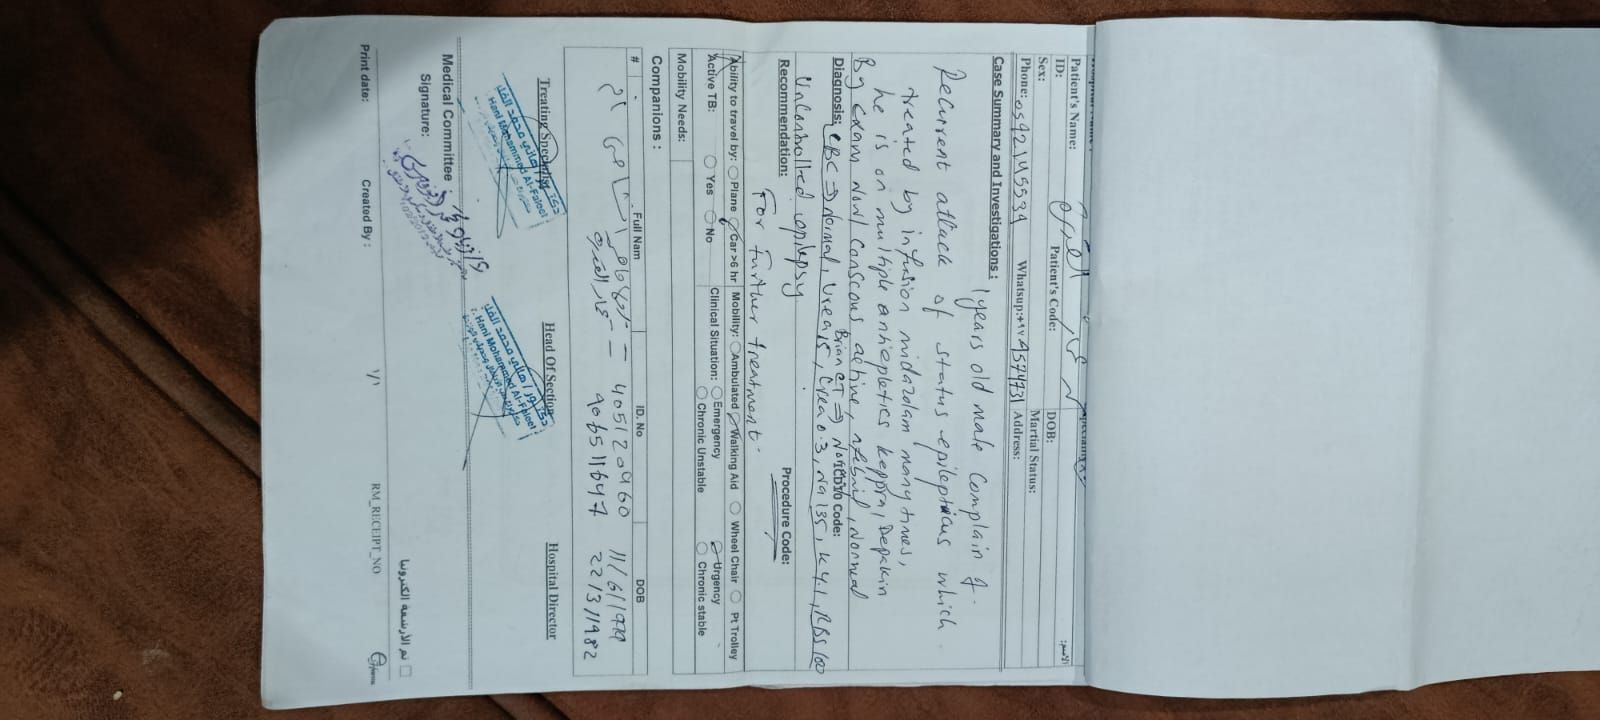 Patient's Name:
ID: Patient's Code: DOB:
Sex: Martial Status:
Phone: 0592145534 Whatsup: Address:
Case Summary and Investigations:
years old male Complain of
Recurrent attack of status epilepticus which
treated by infusion midazolam many times,
he is on multiple antiepleptics keppra, Depakin
By exam Now/ Conscous active, afebril, Normal
Brian CT ⇒ Normal
Diagnosis: Code:
CBC ⇒ Normal, Urea 15, Crea 0.3, Na 135, K 4.1, RBS 100
Uncontrolled epilepsy
Recommendation: Procedure Code:
For further treatment.
Ability to travel by: Plane Car >6 hr Mobility: Ambulated Walking Aid Wheel Chair Pt Trolley
Active TB: Yes No Clinical Situation: Emergency Urgency
Chronic Unstable Chronic stable
Mobility Needs:
Companions :
# Full Nam ID. No DOB
405120960 11/6/1979
906511647 22/3/1982
Treating Specialist Head Of Section Hospital Director
دكتور / هاني محمد الفليت
Hani Mohammed Al-Faleet
دكتور / هاني محمد الفليت
Hani Mohammed Al-Faleet
Medical Committee :
Signature:
تم الأرشفة الكترونيا
Print date: Created By : 1/1 RM_RECEIPT_NO